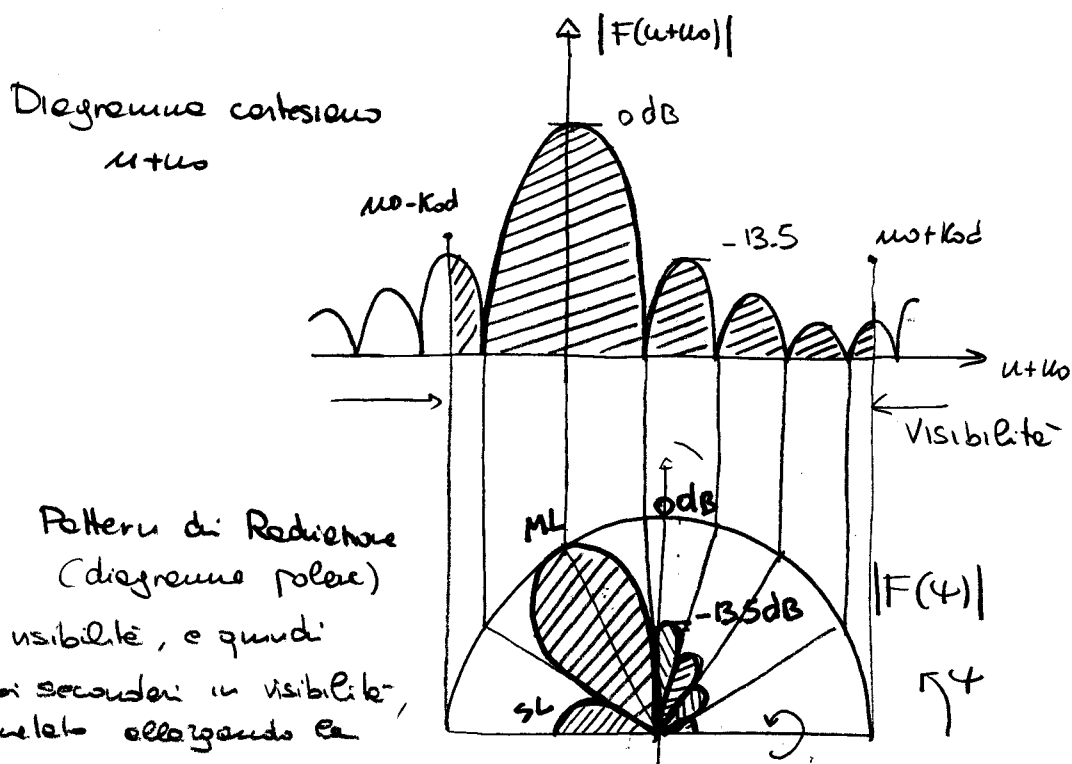 |F(u+u0)|
Diagramma cartesiano
u+u0
0 dB
u0-K0d
-13.5
u0+K0d
u+u0
Visibilità
Pattern di Radiazione
(diagramma polare)
visibilità, e quindi
secondari in visibilità,
allargando la
ML
0 dB
-13.5 dB
|F(ψ)|
SL
ψ